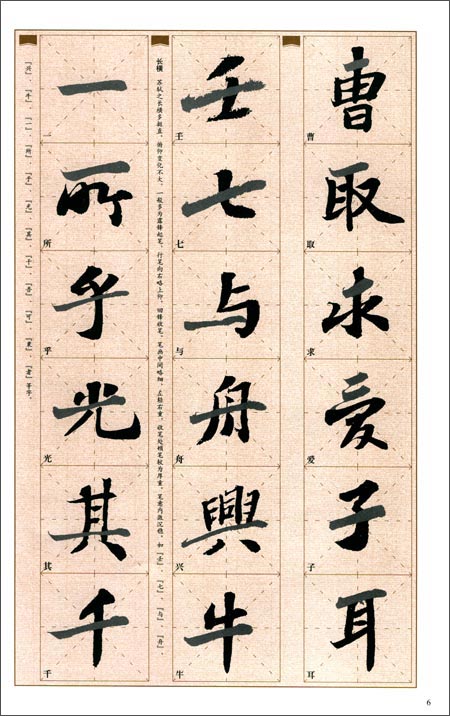 曹取求爱子耳
曹 取 求 爱 子 耳
壬七与舟興牛
壬 七 与 舟 兴 牛
长横 苏轼之长横多挺直，俯仰变化不大，一般多为露锋起笔，行笔向右略上仰，回锋收笔，笔画中间略细，左轻右重，收笔处顿笔较为厚重，笔意内敛沉稳。如『壬』、『七』、『与』、『舟』、
一所乎光其千
一 所 乎 光 其 千
『兴』、『牛』、『一』、『所』、『乎』、『光』、『其』、『千』、『吾』、『可』、『老』等字。
6